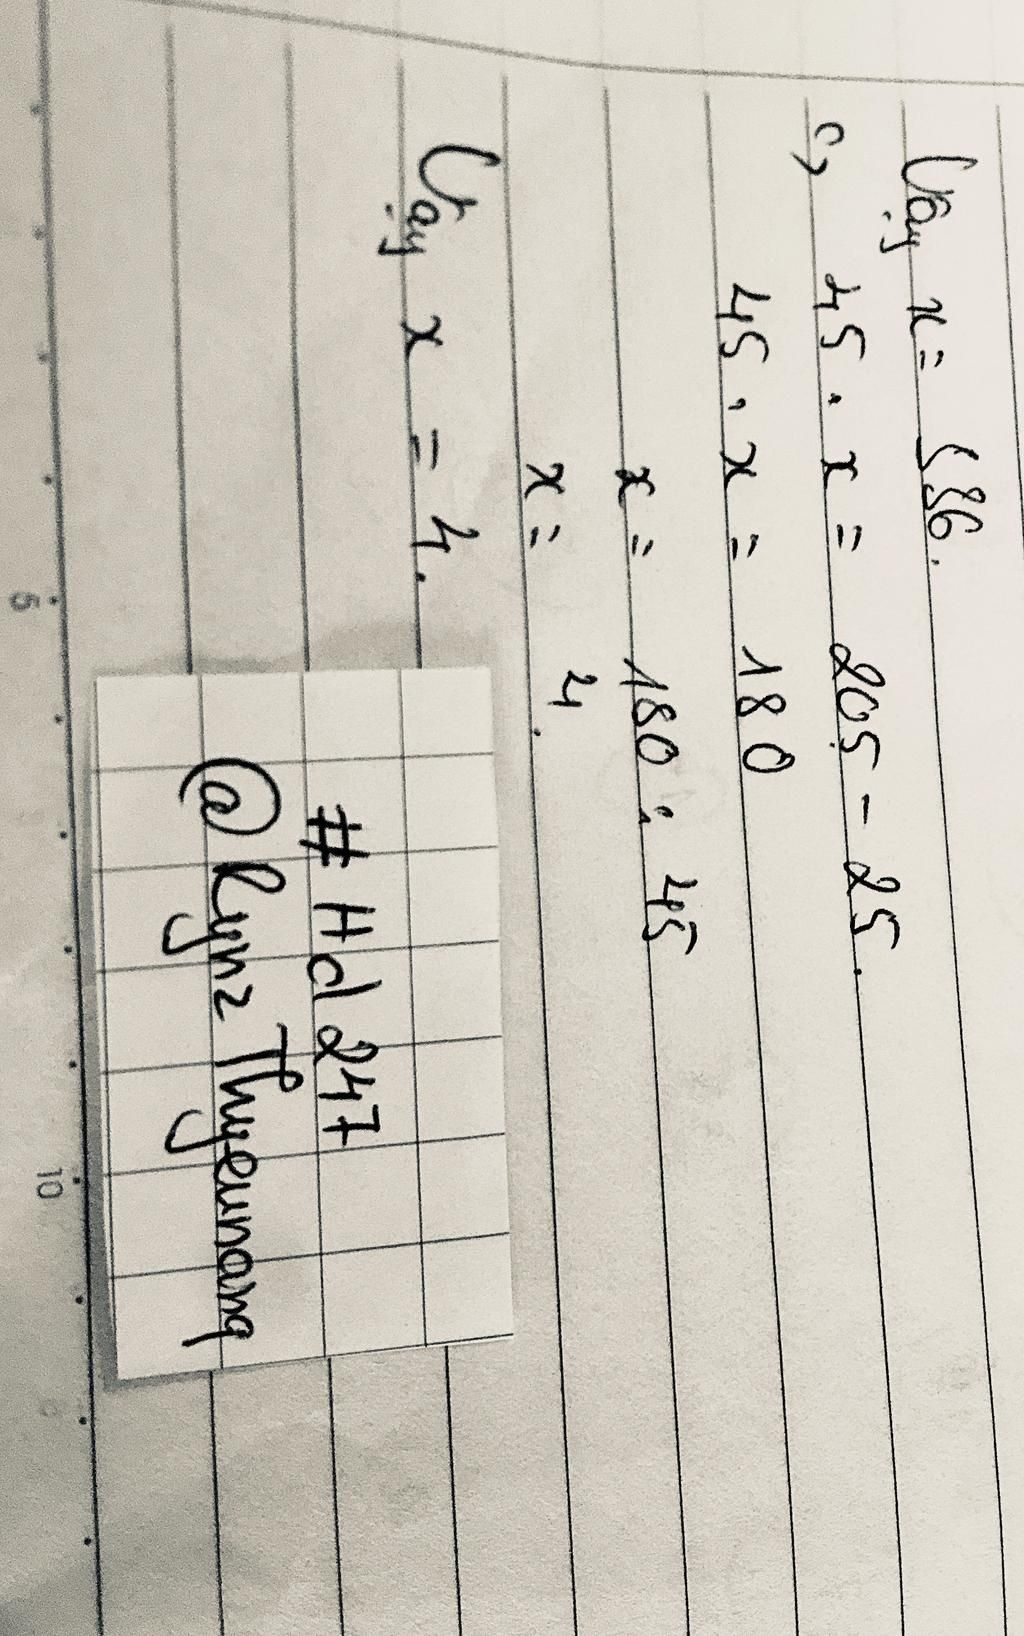 Vậy x = 586.
c, 45 . x = 205 - 25.
45 . x = 180
x = 180 : 45
x = 4.
Vậy x = 4.
# Hd 247
5
10